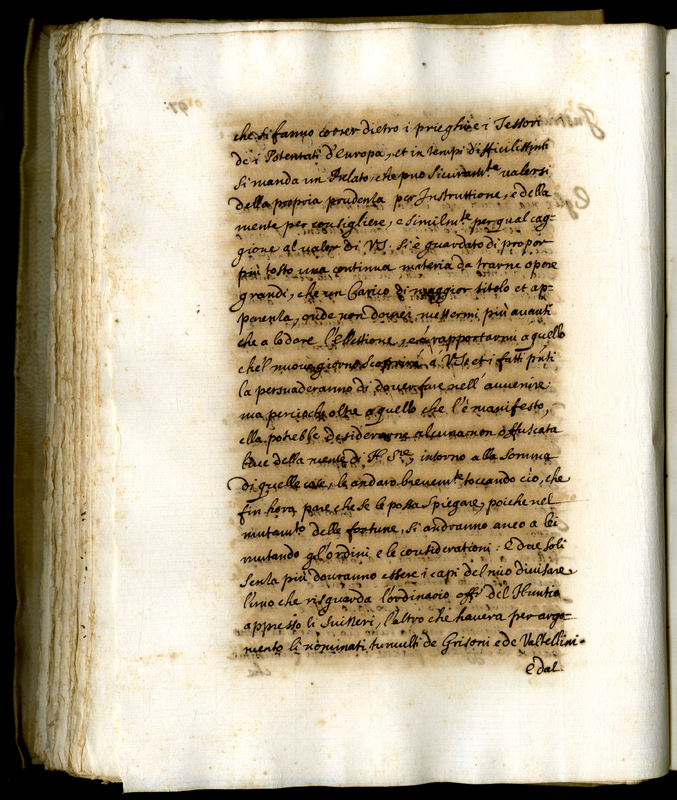 che si fanno correr dietro i prieghi e i Tesori
de i Potentati d'europa, et in tempi difficilissimi
si manda un Prelato, che può sicuram.te valersi
della propria prudenza per Instruttione, e della
mente per consigliere, e similm.te per qual cag=
gione al valor di VS. si è guardato di propor
più tosto una continua materia da trarne opere
grandi, che un Carico di maggior titolo et ap=
parenza, onde non dovrei mettermi più avanti
che a lodare l'elettione, e à rapportarmi a quello
che'l nuovo giorno scoprirà à VS. et i fatti
la persuaderanno di dover fare nell'avvenire:
ma percioche oltre a quello che l'è manifesto,
ella potrebbe desiderarne alcuna non offuscata
luce della mente di N. S.re intorno alla somma
di quelle cose, le andarò brevem.te toccando ciò, che
fin hora pare che se le possa spiegare, poiche nel
mutam.to delle fortune, si andranno anco a lei
mutando gl'ordini e le considerationi: E due soli
senza più dovranno essere i capi del mio divisare
l'uno che risguarda l'ordinario off.o del Nuntio
appresso li Suizzeri, l'altro che haverà per argo=
mento li nominati tumulti de Grisoni e de Valtellini.
E dal